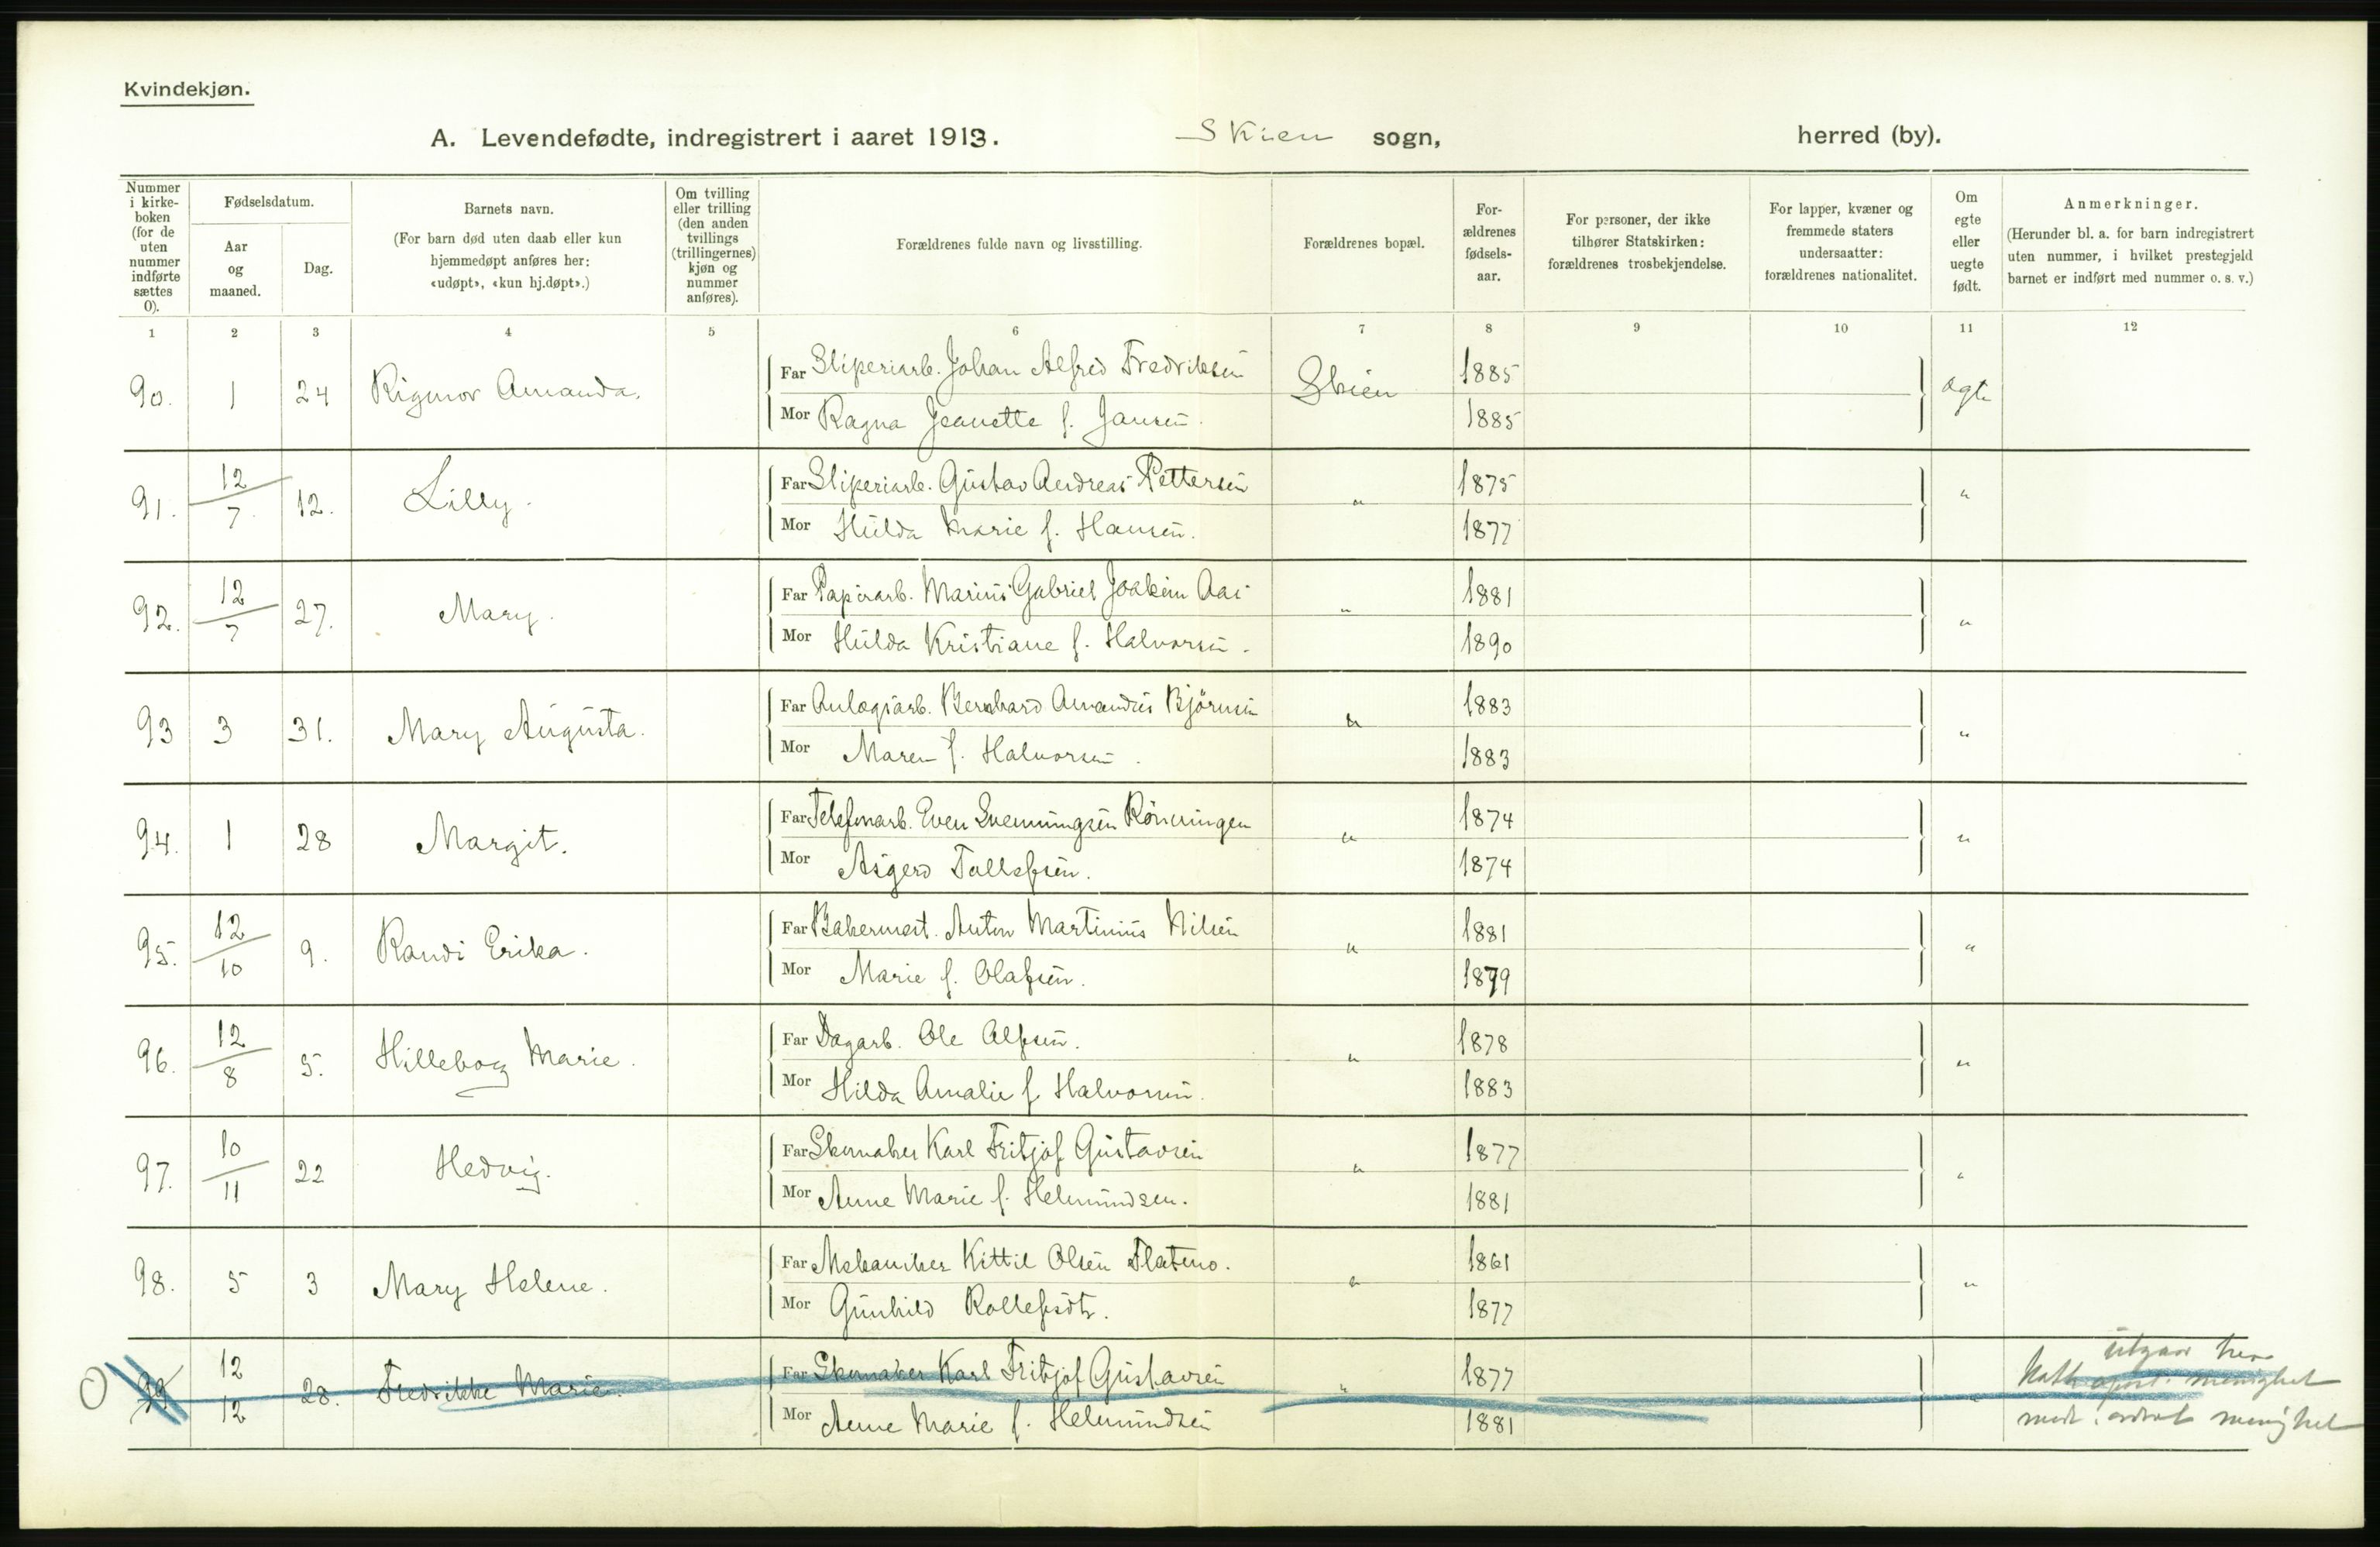 Kvindekjøn.
A. Levendefødte, indregistrert i aaret 1913. Skien sogn, herred (by).
Nummer i kirke-boken (for de uten nummer indførte sættes 0).
Fødselsdatum.
Aar og maaned.
Dag.
Barnets navn.
(For barn død uten daab eller kun hjemmedøpt anføres her: «udøpt», «kun hj.døpt».)
Om tvilling eller trilling (den anden tvillings (trillingernes) kjøn og nummer anføres).
Forældrenes fulde navn og livsstilling.
Forældrenes bopæl.
For-ældrenes fødsels-aar.
For personer, der ikke tilhører Statskirken: forældrenes trosbekjendelse.
For lapper, kvæner og fremmede staters undersaatter: forældrenes nationalitet.
Om egte eller uegte født.
Anmerkninger.
(Herunder bl. a. for barn indregistrert uten nummer, i hvilket prestegjeld barnet er indført med nummer o. s. v.)
1 2 3 4 5 6 7 8 9 10 11 12
90. 1 24 Rigmor Amanda. Far Sliperiarb. Johan Alfred Fredriksen Skien 1885 ægte
Mor Ragna Jeanette f. Jansen. 1885
91. 12/7. 12. Lilly. Far Sliperiarb. Gustav Andreas Pettersen " 1875 "
Mor Hulda Marie f. Hansen. 1877
92. 12/7 27. Mary. Far Papirarb. Marius Gabriel Joakim Aas " 1881 "
Mor Hulda Kristiane f. Halvorsen. 1890
93 3 31. Mary Augusta. Far Anlægsarb. Bernhard Amandus Björnsen " 1883 "
Mor Maren f. Halvorsen. 1883
94. 1 28 Margit. Far Telefonarb. Even Svenningsen Rönningen " 1874 "
Mor Asgerd Tollefsen. 1874
95. 12/10 9. Randi Erika. Far Bakermest. Anton Martinius Nilsen " 1881 "
Mor Marie f. Olafsen. 1879
96. 12/8 5. Hilleborg Marie. Far Dagarb. Ole Alfsen. " 1878 "
Mor Hilda Amalie f. Halvorsen. 1883
97. 10/11 22 Hedvig. Far Skomaker Karl Fritjof Gustavsen " 1877 "
Mor Anne Marie f. Helmundsen. 1881
98. 5 3 Mary Helene. Far Mekaniker Kittil Olsen Flatmo. " 1861 "
Mor Gunhild Rollefsdtr. 1877
utgaar her
0 99 12 12 28. Fredrikke Marie. Far Skomaker Karl Fritjof Gustavsen " 1877 " menighet
Mor Anne Marie f. Helmundsen 1881 menighet